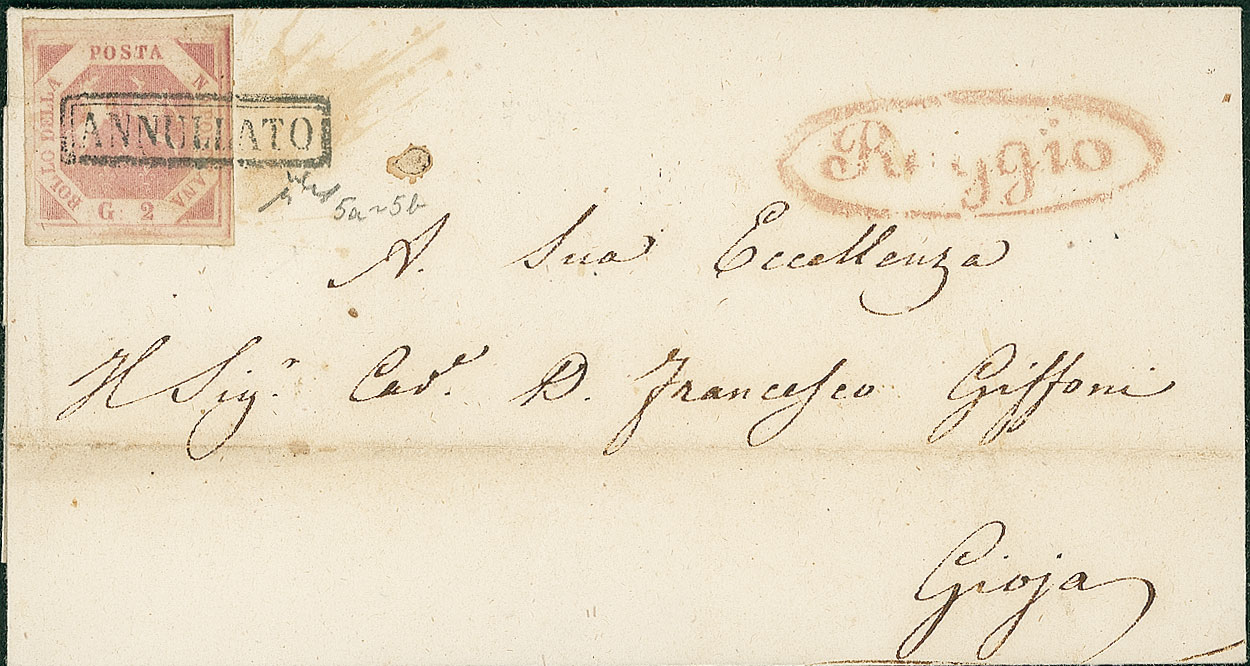 POSTA
BOLLO DELLA
NAPOLETANA
G. 2
ANNULLATO
Reggio
5a-5b
A. Sua Eccellenza
Il Sigr. Cavr. D. Francesco Giffoni
Gioja